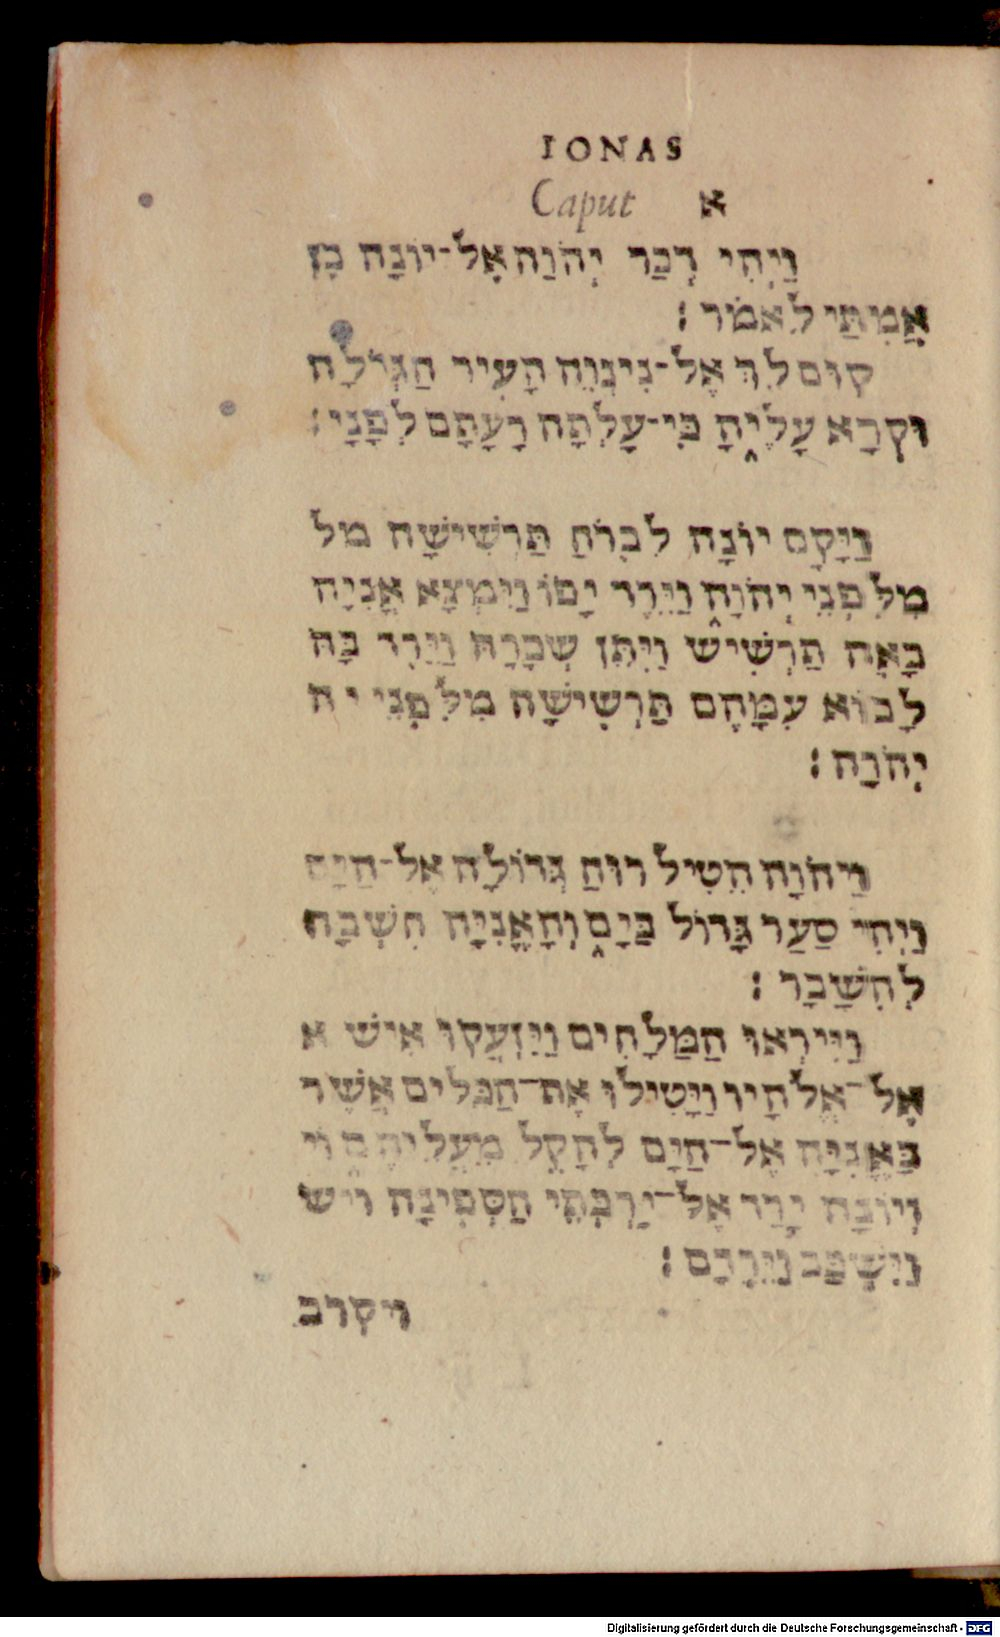 IONAS
Caput א
וַיְהִי דְּבַר יְהֹוָה אֶל־יוֹנָה בֶן
אֲמִתַּי לֵאמֹר׃
קוּם לֵךְ אֶל־נִינְוֵה הָעִיר הַגְּדֹולָה
וּקְרָא עָלֶיהָ כִּי־עָלְתָה רָעָתָם לְפָנָי׃
וַיָּקָם יוֹנָה לִבְרֹחַ תַּרְשִׁישָׁה מל
מִלִּפְנֵי יְהֹוָה וַיֵּרֶד יָפוֹ וַיִּמְצָא אֳנִיָּה
בָּאָה תַרְשִׁישׁ וַיִּתֵּן שְׂכָרָהּ וַיֵּרֶד בָּהּ
לָבוֹא עִמָּהֶם תַּרְשִׁישָׁה מִלִּפְנֵי יה
יְהֹוָה׃
וַיהֹוָה הֵטִיל רוּחַ גְּדוֹלָה אֶל־הַיָּם
וַיְהִי סַעַר גָּדוֹל בַּיָּם וְהָאֳנִיָּה חִשְּׁבָה
לְהִשָּׁבֵר׃
וַיִּירְאוּ הַמַּלָּחִים וַיִּזְעֲקוּ אִישׁ א
אֶל־אֱלֹהָיו וַיָּטִילוּ אֶת־הַכֵּלִים אֲשֶׁר
בָּאֳנִיָּה אֶל־הַיָּם לְהָקֵל מֵעֲלֵיהֶם וי
וְיוֹנָה יָרַד אֶל־יַרְכְּתֵי הַסְּפִינָה ויש
וַיִּשְׁכַּב וַיֵּרָדַם׃
ויקרב
Digitalisierung gefördert durch die Deutsche Forschungsgemeinschaft - DFG